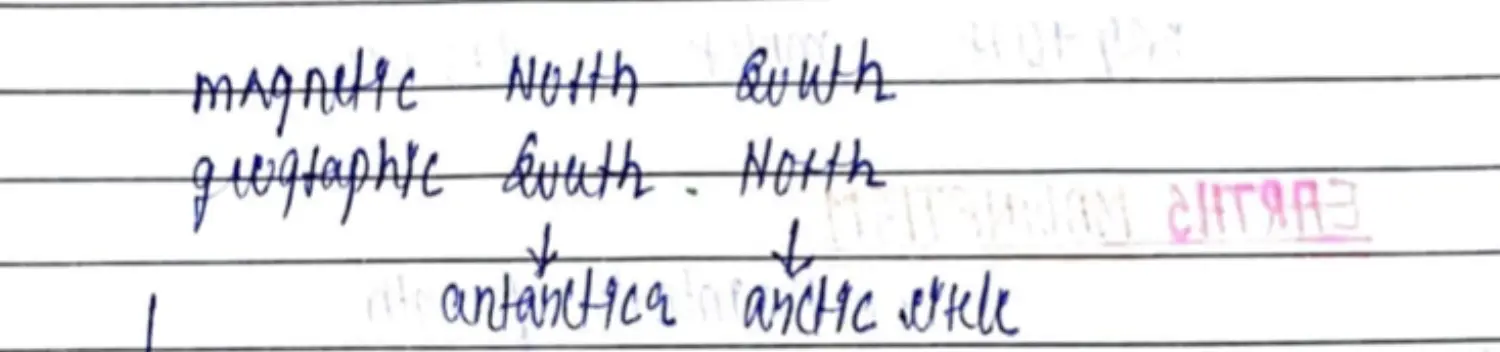 magnetic North South
geographic South . North
↓ ↓
antarctica arctic circle